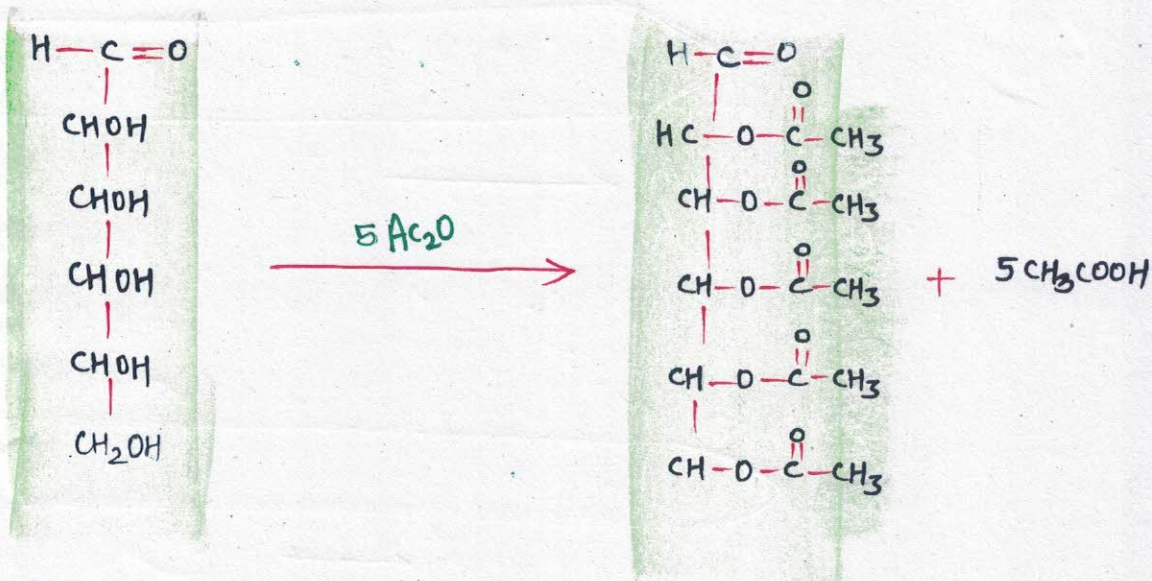 H-C=O
CHOH
CHOH
CHOH
CHOH
CH₂OH
5 Ac₂O
H-C=O
O
HC-O-C-CH₃
O
CH-O-C-CH₃
O
CH-O-C-CH₃
O
CH-O-C-CH₃
O
CH-O-C-CH₃
+ 5CH₃COOH